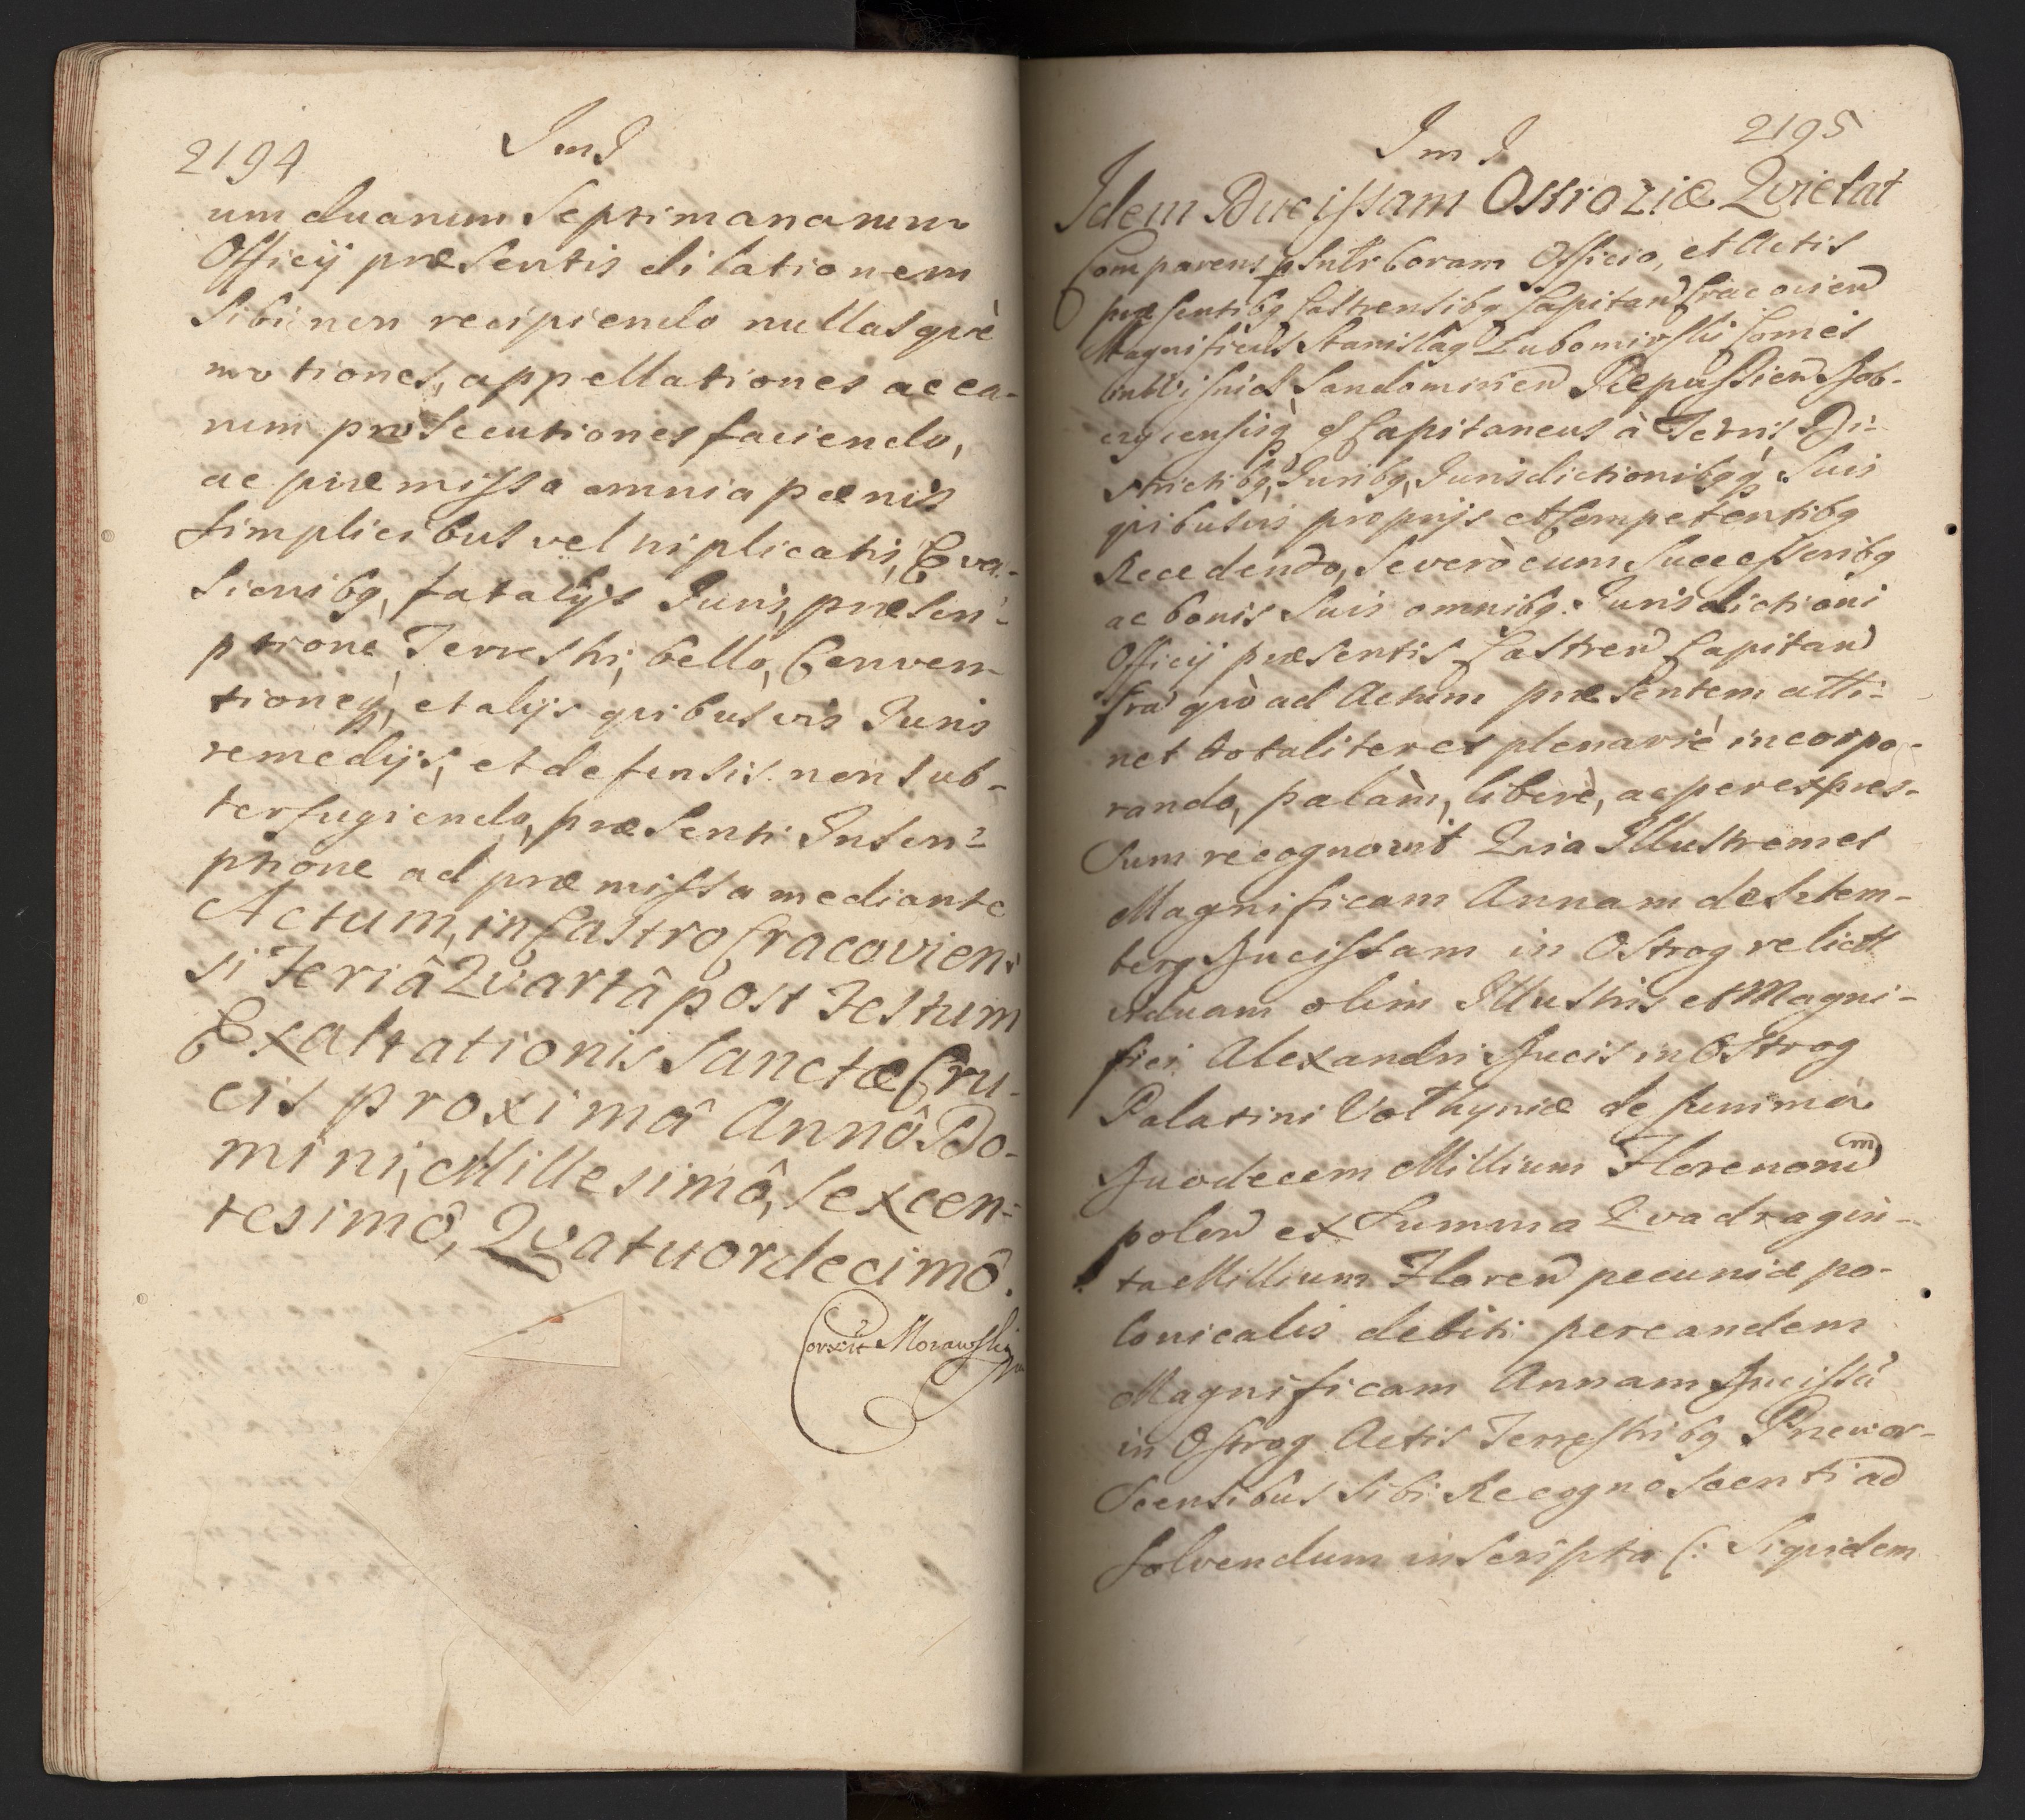 2194
JmJ
um duarum Septimanarum
Officij præsentis dilationem
sibi non recipiendo nullasquè
motiones, appellationes ac ea-
rum prosecutiones faciendo,
ac præmissa omnia pœnis
simplicibus vel triplicatis, Eva-
sionibq, fatalijs Juris, præscri-
ptione Terrestri, bello, Conven-
tioneq, et alijs quibusvis Juris
remedijs, et defensis non sub-
terfugiendo, præsenti Inscri-
ptione ad præmissa mediante
Actum, in Castro Cracovien-
si Feriâ Qvartâ post Festum
Exaltationis Sanctæ Cru-
cis proximâ Annô Do-
mini, Millesimô, Sexcen-
tesimô, Qvatuordecimô.
Correxit Morawski
JmJ
2195
Idem Ducissam Ostrogiæ Qvietat
Comparens psnlr Coram Officio, et Actis
præsentibq Castrensibq Capitan Cracovien
Magnificus Stanislaq Lubomirski Comes
in Wisnicz Sandomirien Scepussien Dob-
czycensisq Capitaneus à Terris, Di-
strictibq, Juribq, Jurisdictionibqq Suis
quibusvis proprijs et Competentibq
Recedendo, Se verò cum Successoribq
ac bonis Suis omnibq Jurisdictioni
Officij præsentis Castren Capitan
Cra quò ad Actum præsentem atti-
net totaliter et plenariè incorpo-
rando, palàm, liberè, ac per expres-
sum recognovit Quia Illustrem et
Magnificam Annam de Sztem-
berg Ducissam in Ostrog relictã
viduam olim Illustris et Magni-
fici Alexandri Ducis in Ostrog
Palatini Volhyniæ de summa
Duodecem Millium Florenorum
polon ex Summa Qvadragin-
ta Millium Floren pecuniæ po-
lonicalis debiti per eandem
Magnificam Annam Ducissã
in Ostrog Actis Terrestribq Przewor-
scensibus sibi Recognoscenti ad
solvendum inscripta (: Siquidem